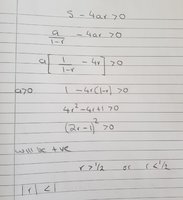 S - 4ar > 0
a/(1-r) - 4ar > 0
a[1/(1-r) - 4r] > 0
a>0 1 - 4r(1-r) > 0
4r² - 4r + 1 > 0
(2r-1)² > 0
will be +ve
r > 1/2 or r < 1/2
|r| < 1